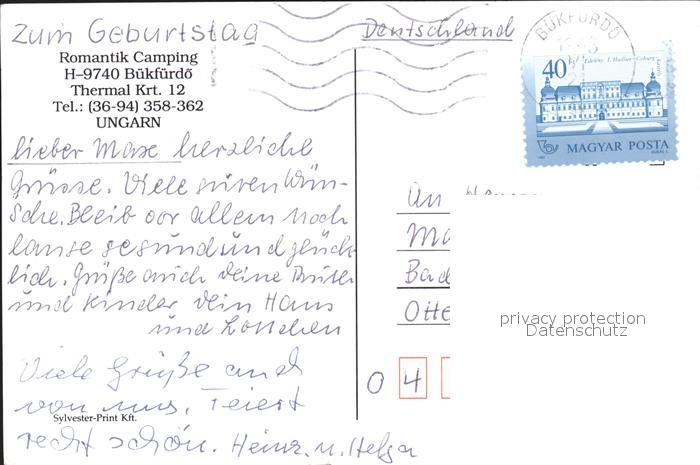 zum Geburtstag
Romantik Camping
H-9740 Bükfürdő
Thermal Krt. 12
Tel.: (36-94) 358-362
UNGARN
lieber Max herzliche
Grüsse. Viele guten Wün-
sche. Bleib vor allem noch
lange gesund und glück-
lich. Grüße auch deine
und Kinder dein Hans
und Lottchen
Viele Grüße auch
von uns. Feiert
recht schön. Heinz u. Helga
Sylvester-Print Kft.
Deutschland
BÜKFÜRDŐ
40 Ft
MAGYAR POSTA
An
Ma
Bad
Otte
0 4
privacy protection
Datenschutz